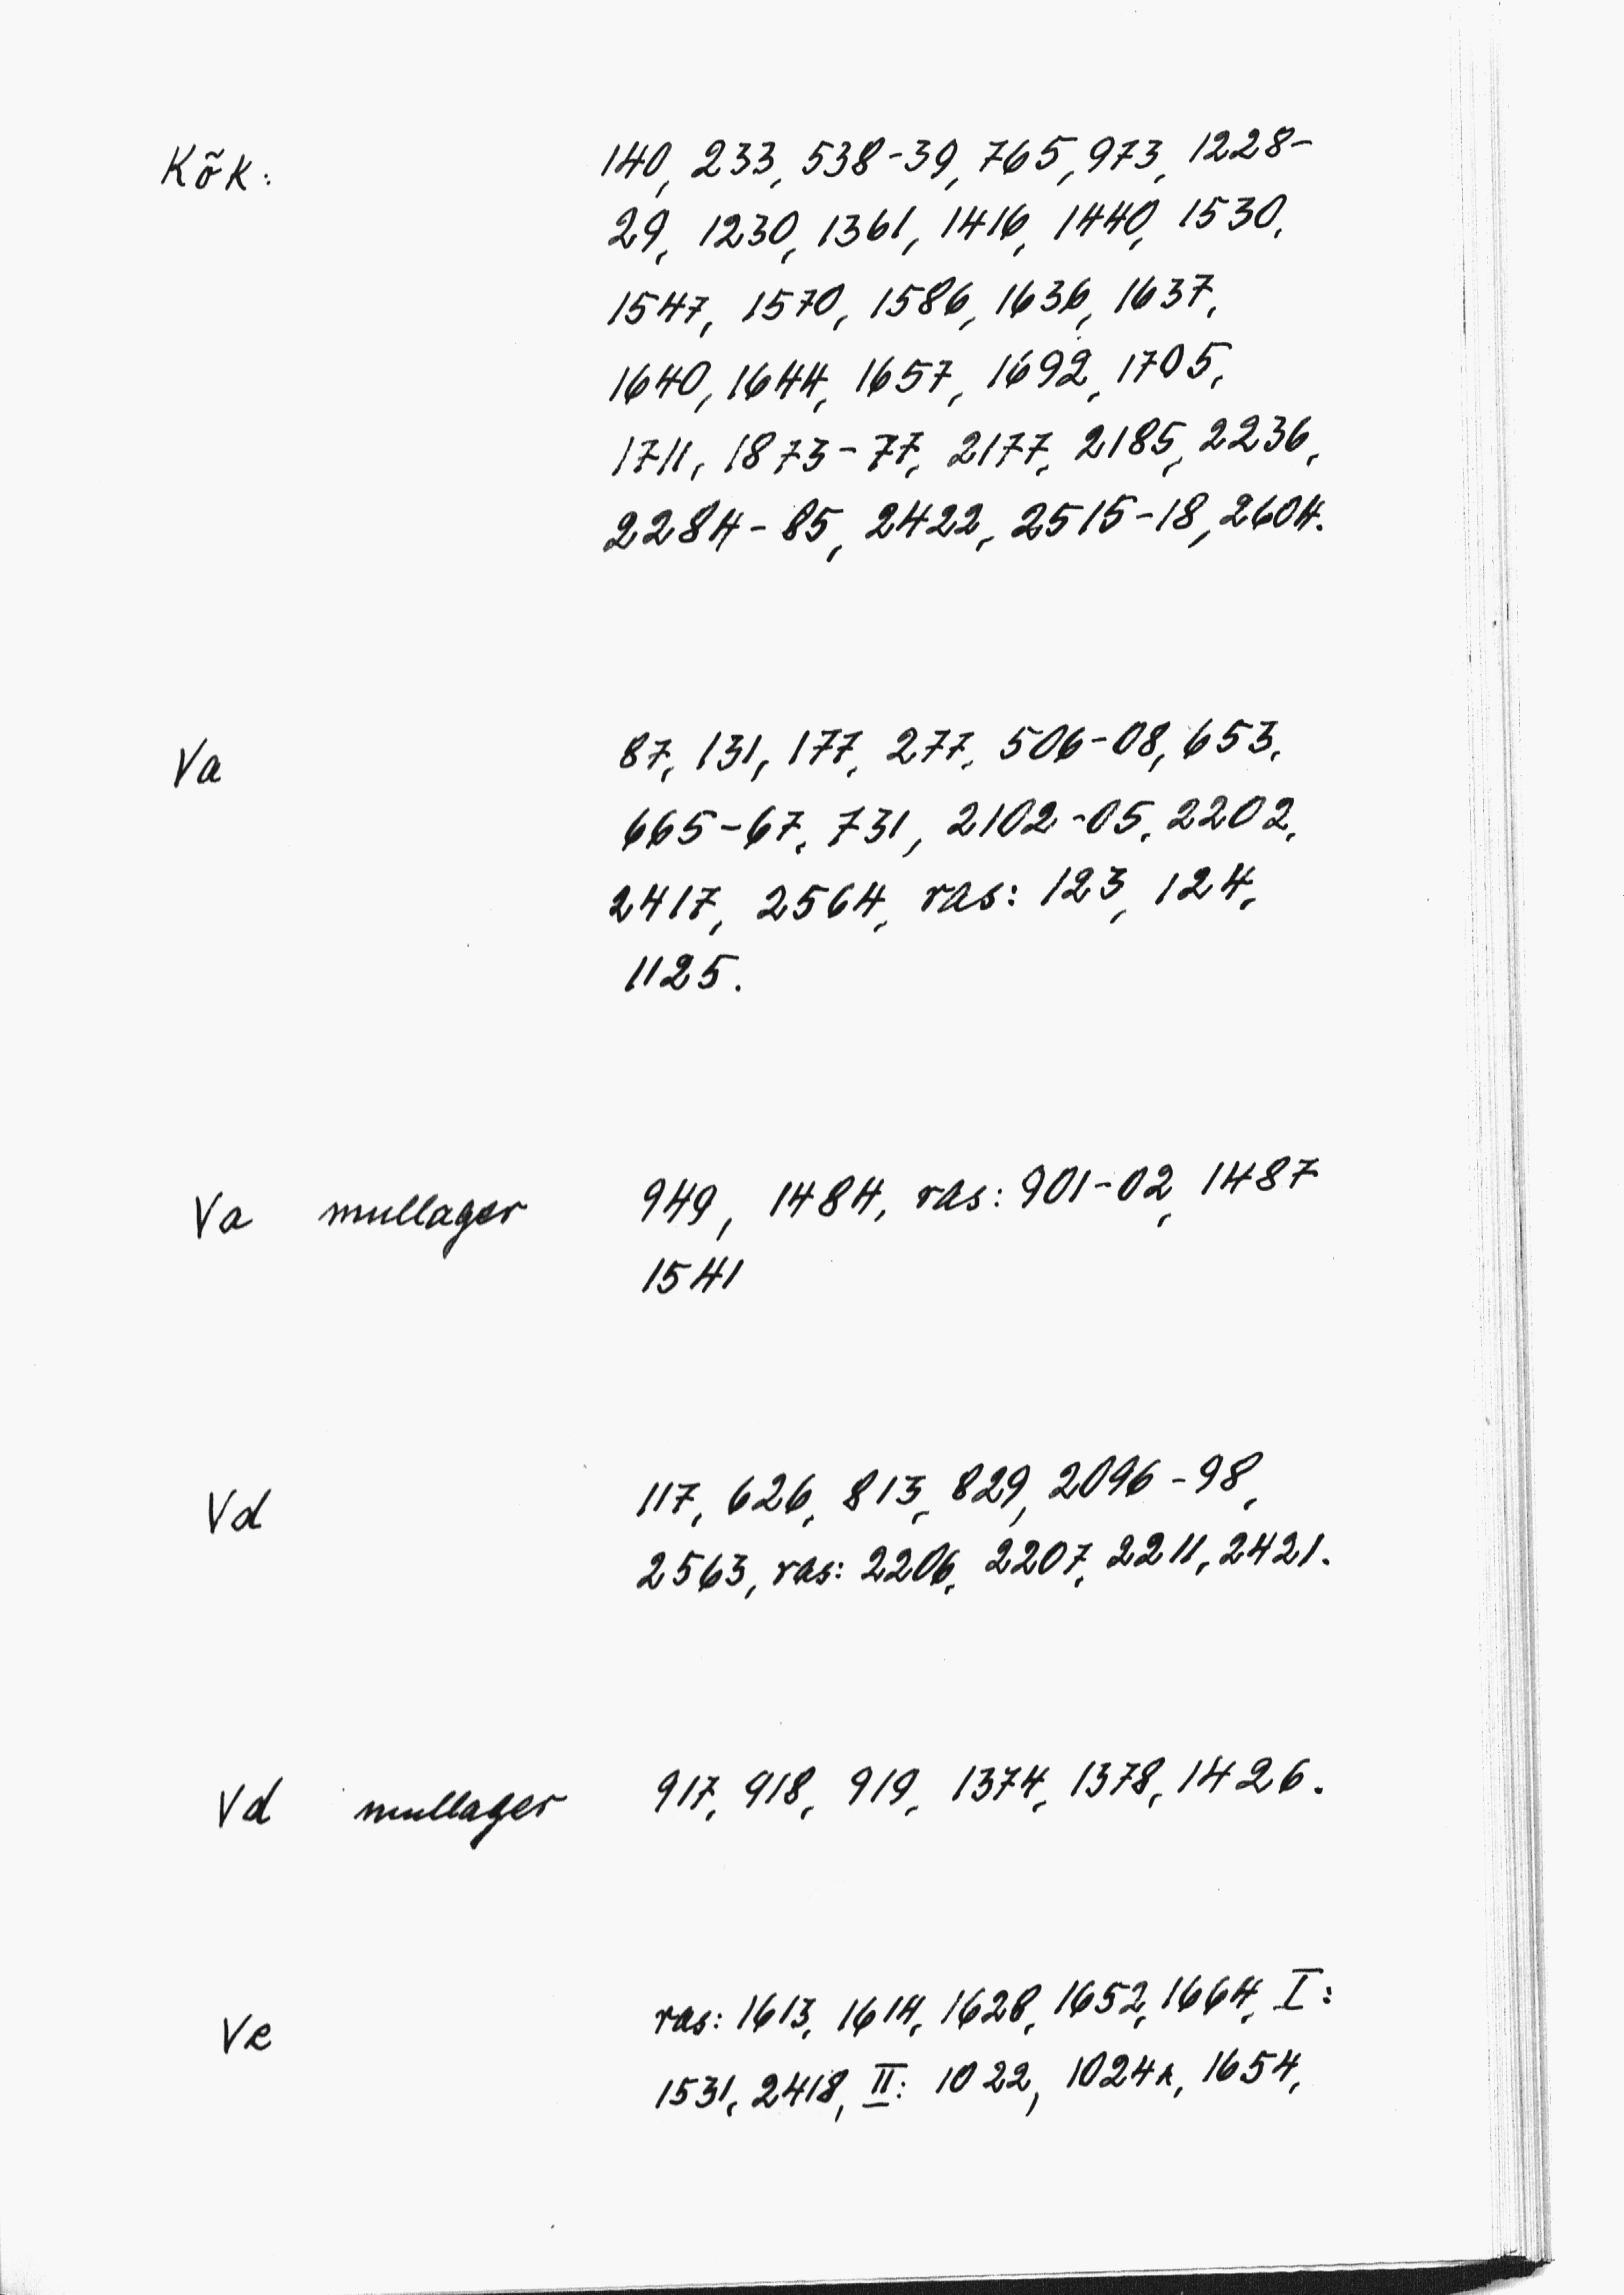 Kök: 140, 233, 538-39, 765, 973, 1228-
29, 1230, 1361, 1416, 1440, 1530,
1547, 1570, 1586, 1636, 1637,
1640, 1644, 1657, 1692, 1705,
1711, 1873-77, 2177, 2185, 2236,
2284-85, 2422, 2515-18, 2604.
Va 87, 131, 177, 277, 506-08, 653,
665-67, 731, 2102-05, 2202,
2417, 2564, ras: 123, 124,
1125.
Va mullager 949, 1484, ras: 901-02, 1487
1541
Vd 117, 626, 813, 829, 2096-98,
2563, ras: 2206, 2207, 2211, 2421.
Vd mullager 917, 918, 919, 1374, 1378, 1426.
Ve ras: 1613, 1614, 1628, 1652, 1664, I:
1531, 2418, II: 1022, 1024, 1654,